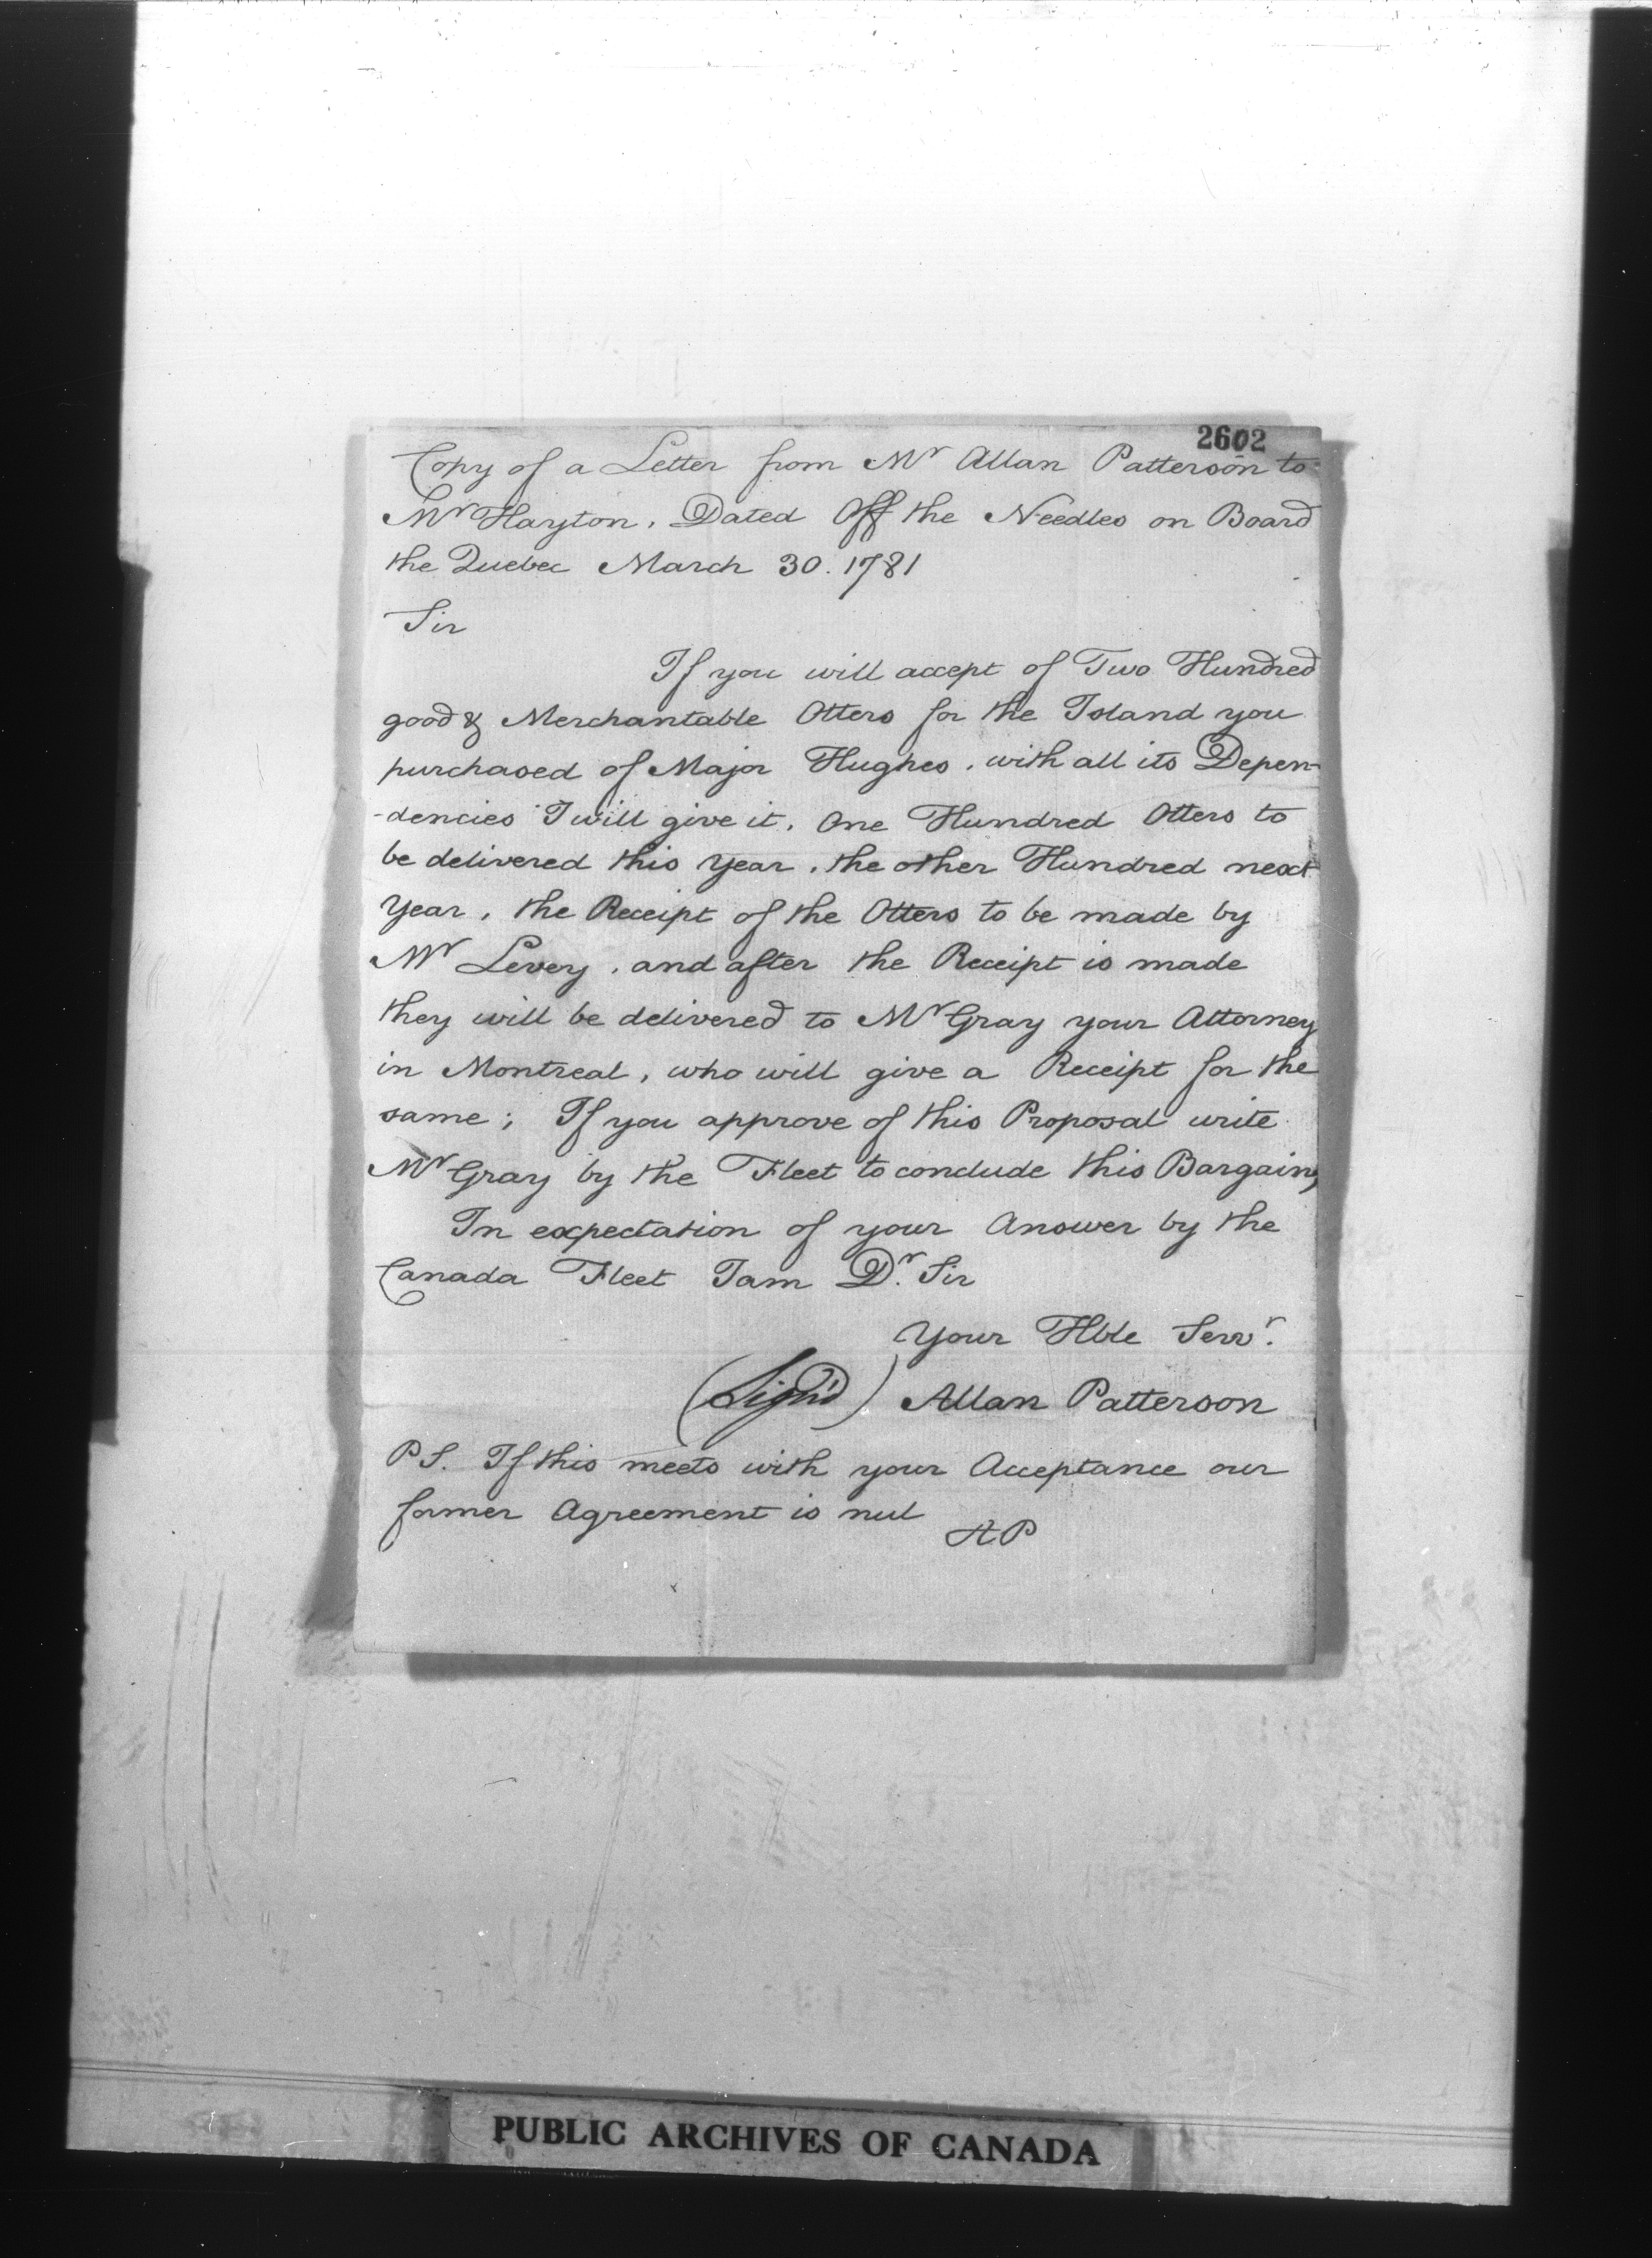 2602
Copy of a Letter from Mr Allan Patterson to
Mr Hayton, Dated Off the Needles on Board
the Quebec March 30. 1781
Sir
If you will accept of Two Hundred
good & Merchantable Otters for the Island you
purchased of Major Hughes, with all its Depen-
-dencies I will give it, One Hundred Otters to
be delivered this Year, the other Hundred next
Year, the Receipt of the Otters to be made by
Mr Levey, and after the Receipt is made
they will be delivered to Mr Gray your Attorney
in Montreal, who will give a Receipt for the
same; If you approve of this Proposal write
Mr Gray by the Fleet to conclude this Bargain,
In expectation of your Answer by the
Canada Fleet I am Dr. Sir
Your Hble Servr.
(Sign'd) Allan Patterson
PS. If this meets with your Acceptance our
former Agreement is nul
AP
PUBLIC ARCHIVES OF CANADA